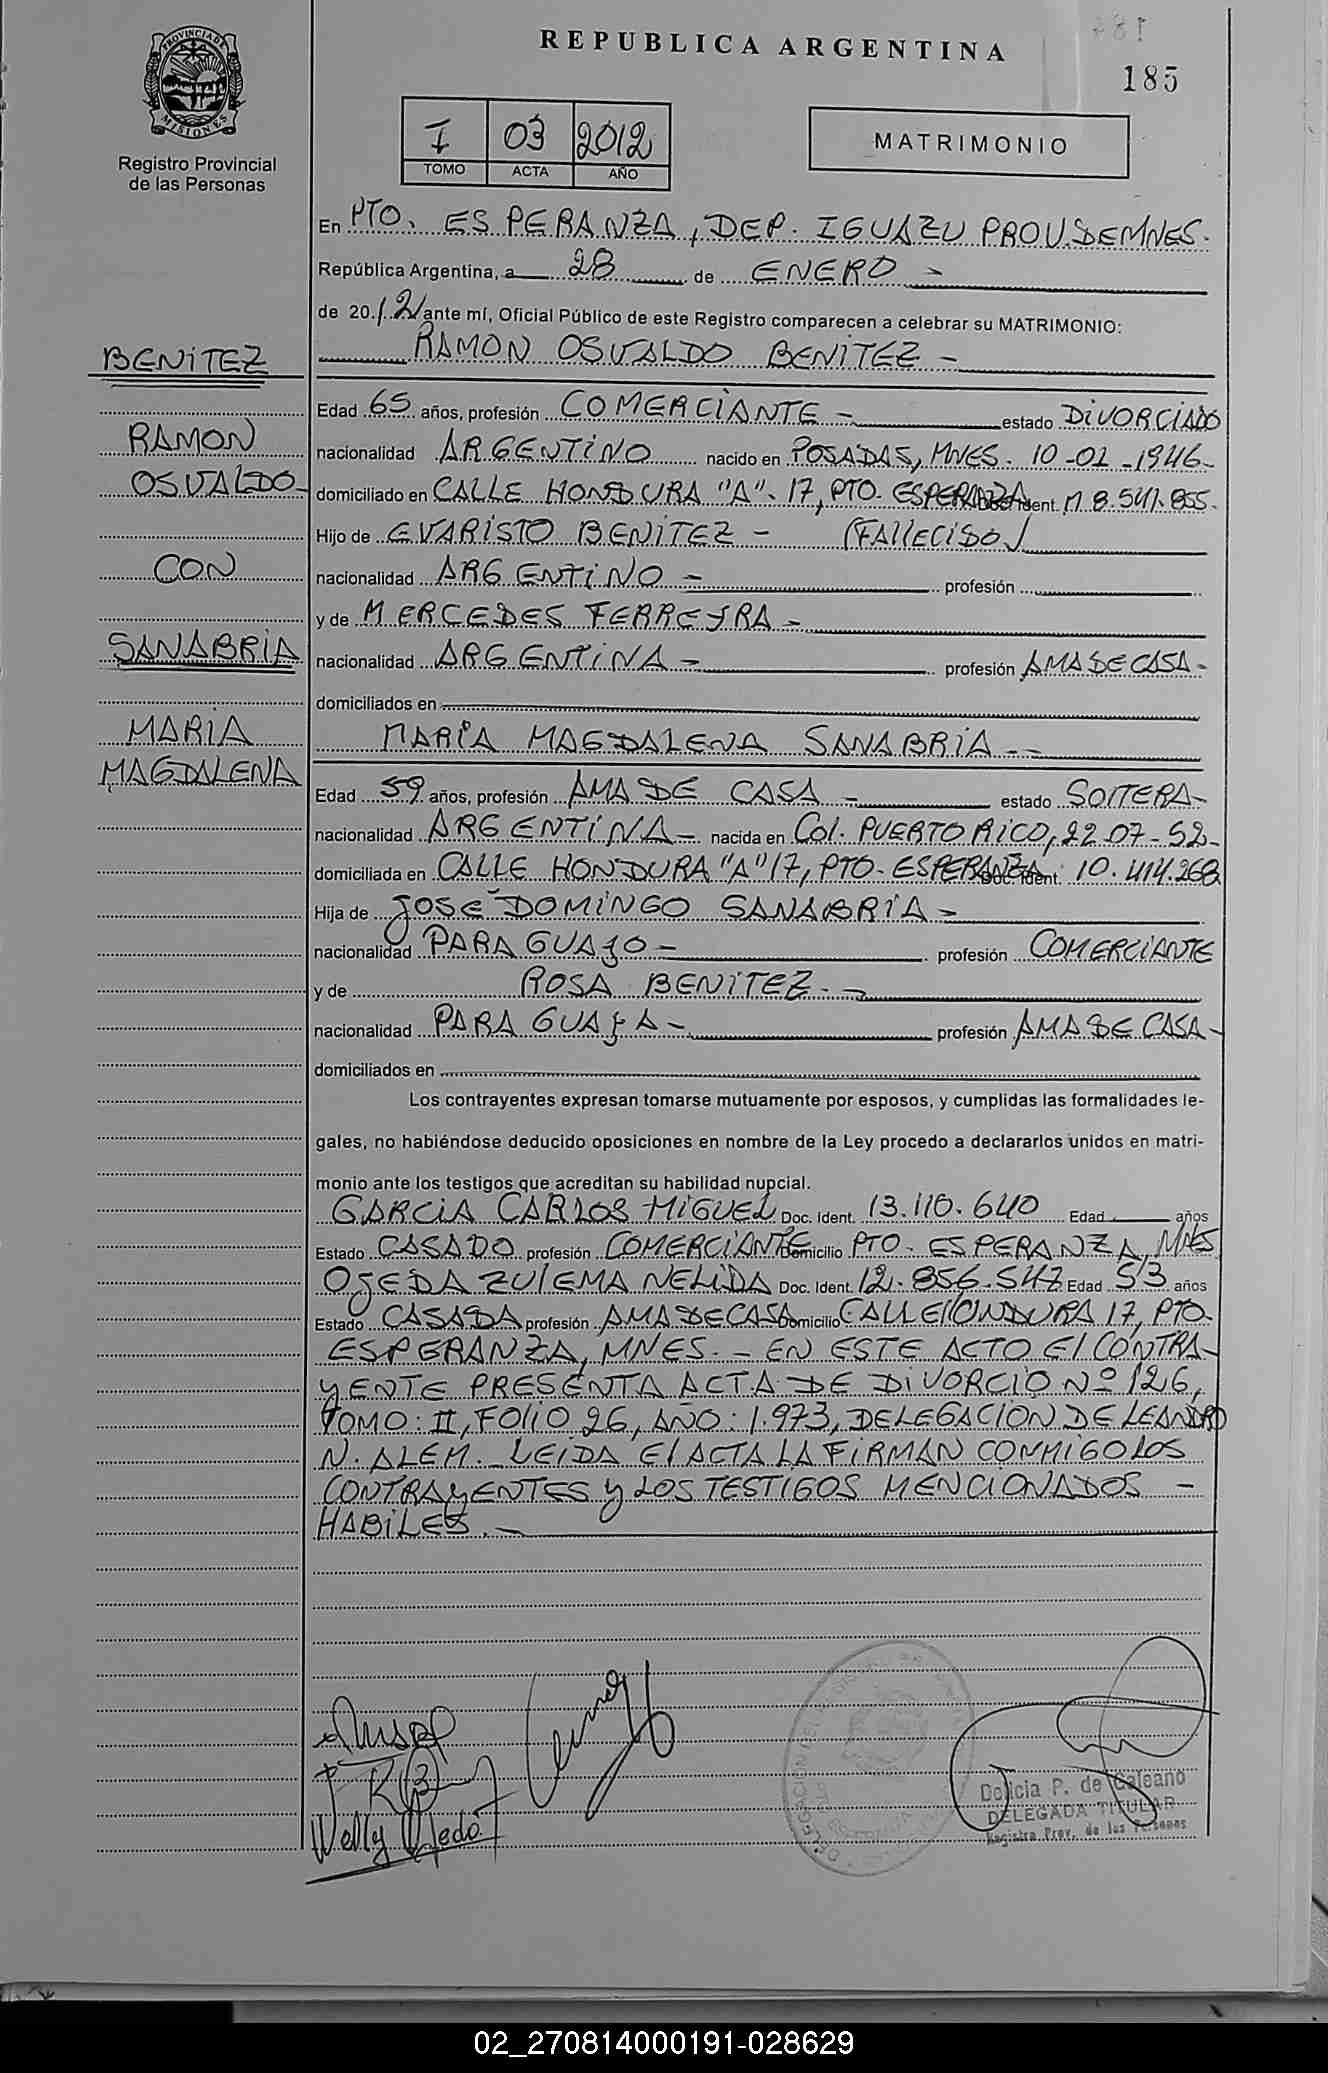 REPUBLICA ARGENTINA
185
PROVINCIA DE
MISIONES
Registro Provincial
de las Personas
I 03 2012
TOMO ACTA AÑO
MATRIMONIO
En PTO. ESPERANZA, DEP. IGUAZU PROV. DE MNES.
República Argentina, a 28 de ENERO -
de 20.12 ante mí, Oficial Público de este Registro comparecen a celebrar su MATRIMONIO:
RAMON OSVALDO BENITEZ -
BENITEZ
RAMON
OSVALDO -
CON
SANABRIA
MARIA
MAGDALENA
Edad 65 años, profesión COMERCIANTE - estado DIVORCIADO
nacionalidad ARGENTINO nacido en POSADAS, MNES. 10-02-1946-
domiciliado en CALLE HONDURA "A"- 17, PTO. ESPERANZA Doc. Ident. M 8.541.855.
Hijo de EVARISTO BENITEZ - (FALLECIDO)
nacionalidad ARGENTINO - profesión
y de MERCEDES FERREYRA -
nacionalidad ARGENTINA - profesión AMA DE CASA -
domiciliados en
MARIA MAGDALENA SANABRIA --
Edad 59 años, profesión AMA DE CASA - estado SOLTERA -
nacionalidad ARGENTINA - nacida en Col. PUERTO RICO, 22-07-52-
domiciliada en CALLE HONDURA "A" 17, PTO. ESPERANZA Doc. Ident. 10.414.268
Hija de JOSE DOMINGO SANABRIA -
nacionalidad PARAGUAYO - profesión COMERCIANTE
y de ROSA BENITEZ. -
nacionalidad PARAGUAYA - profesión AMA DE CASA -
domiciliados en
Los contrayentes expresan tomarse mutuamente por esposos, y cumplidas las formalidades le-
gales, no habiéndose deducido oposiciones en nombre de la Ley procedo a declararlos unidos en matri-
monio ante los testigos que acreditan su habilidad nupcial.
GARCIA CARLOS MIGUEL Doc. Ident. 13.110.640 Edad años
Estado CASADO profesión COMERCIANTE domicilio PTO. ESPERANZA, MNES
OJEDA ZULEMA NELIDA Doc. Ident. 12.856.547 Edad 53 años
Estado CASADA profesión AMA DE CASA Domicilio CALLE HONDURA 17, PTO.
ESPERANZA, MNES. - EN ESTE ACTO El CONTRA-
YENTE PRESENTA ACTA DE DIVORCIO Nº 126,
TOMO: II, FOLIO 26, AÑO: 1.973, DELEGACION DE LEANDRO
N. ALEM. - LEIDA El ACTA LA FIRMAN CONMIGO LOS
CONTRAYENTES y LOS TESTIGOS MENCIONADOS -
HABILES. -
Nelly Ojeda
Delicia P. de Galeano
DELEGADA TITULAR
Registro Prov. de las Personas
02_270814000191-028629